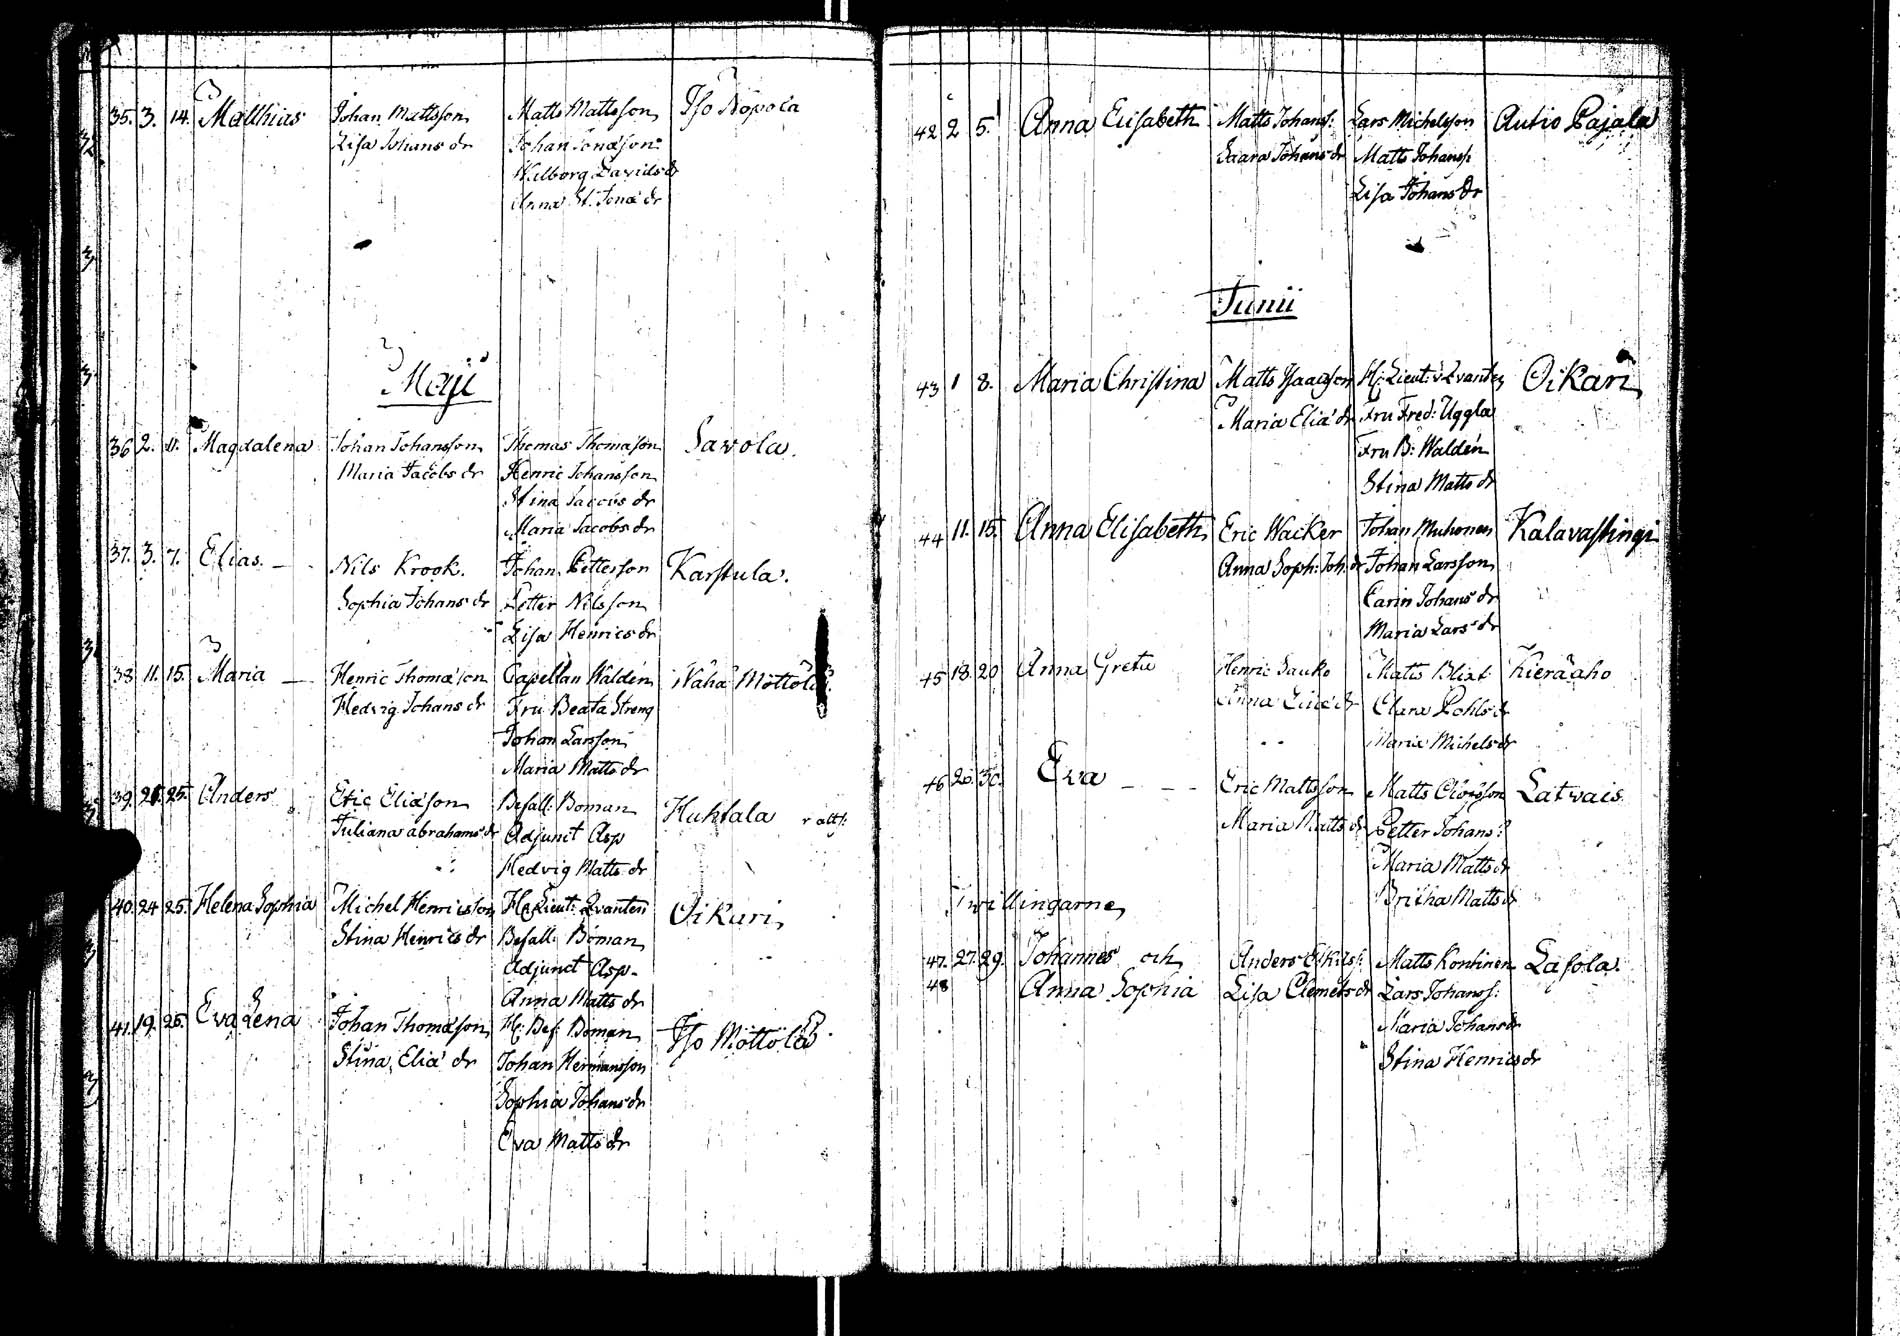 35. 3. 14. Matthias Johan Mattsson Matts Mattsson Iso Nopola
Lisa Johans dr Johan Jonæson
Walborg Davids dr
Anna St. Jonæ dr
Maji
36 2. 11. Magdalena Johan Johansson Thomas Thomason Savola.
Maria Jacobs dr Henric Johansson
Stina Jacobs dr
Maria Jacobs dr
37. 3. 7. Elias. — Nils Krook. Johan Pettersson Karstula.
Sophia Johans dr Petter Nilsson
Lisa Henrics dr
38 11. 15. Maria — Henric Thomason Capellan Waldén Wähä Möttölä
Hedvig Johans dr Fru Beata Streng
Johan Larsson
Maria Matts dr
39. 21. 25. Anders Eric Eliæson Befall: Boman Huhtala
Juliana abrahams dr Adjunct Asp
Hedvig Matts dr
40. 24 25. Helena Sophia Michel Henricsson H: Lieut: Qvanten Oikari
Stina Henrics dr Befall: Boman
Adjunct Asp-
Anna Matts dr
41. 19. 25. Eva Lena Johan Thomason H: Bef: Boman Iso Möttölä.
Stina Eliæ dr Johan Hermansson
Sophia Johans dr
Eva Matts dr
42 2 5. Anna Elisabeth Matts Johanss: Lars Michelsson Autio Pajala
Saara Johans dr Matts Johanss:
Lisa Johans dr
Junii
43 1 8. Maria Christina Matts Isaacsson H: Lieut: v Qvanten Oikari
Maria Eliæ dr Fru Fred: Uggla
Fru B: Waldén
Stina Matts dr
44 11. 15. Anna Elisabeth Eric Wacker Johan Muhonen Kalavastingi
Anna Soph: Joh: dr Johan Larsson
Carin Johans dr
Maria Lars dr
45 18. 20 Anna Greta Henric Sauko Matts Blixt Kieräaho
Anna Eliæ dr Clara Pohls dr
Maria Michels dr
46 26. 30. Eva - - - Eric Mattsson Matts Latvais
Maria Matts dr Petter Johans:
Maria Matts dr
Britha Matts dr
Twillingarne
47. 27. 29. Johannes och Anders Eskils: Matts Kontinen Lasola.
48 Anna Sophia Lisa Clemets dr Lars Johanss:
Maria Johans dr
Stina Henrics dr